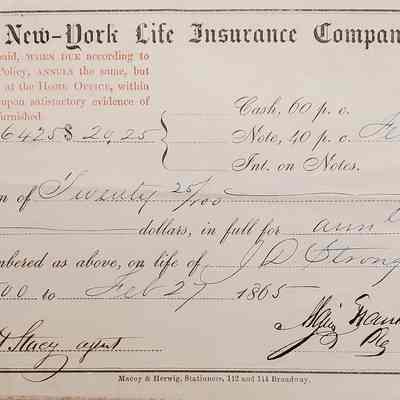 New-York Life Insurance Compan
paid, WHEN DUE according to
Policy, ANNULS the same, but
at the HOME OFFICE, within
upon satisfactory evidence of
furnished.
Cash, 60 p. c.
6425 $ 20,25
Note, 40 p. c.
Int. on Notes.
n of Twenty 25/100
dollars, in full for ann
mbered as above, on life of J D Strong
00 to Feb 27 1865
Stacy agent
Macoy & Herwig, Stationers, 112 and 114 Broadway.